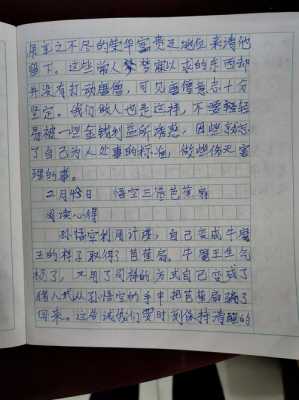 采之不尽的荣华富贵是她应来请他
留下。这些常人梦寐以求的东西却
并没有打动唐僧,可见唐僧意志十分
坚定。我们做人也是这样,不要轻轻
易被一些金钱利益所诱惑,因些忘了
了自己为人处事的标准,做些伤天害
理的事。
2月43日 悟空三借芭蕉扇
阅读心得
孙悟空利用计谋,自己变成牛魔
王的样子取得了芭蕉扇。牛魔王生气
极了,又用了同样的方式自己变成了
猪八戒从孙悟空的手中把芭蕉扇骗了
回来。这告诫我们要时刻保持清醒的